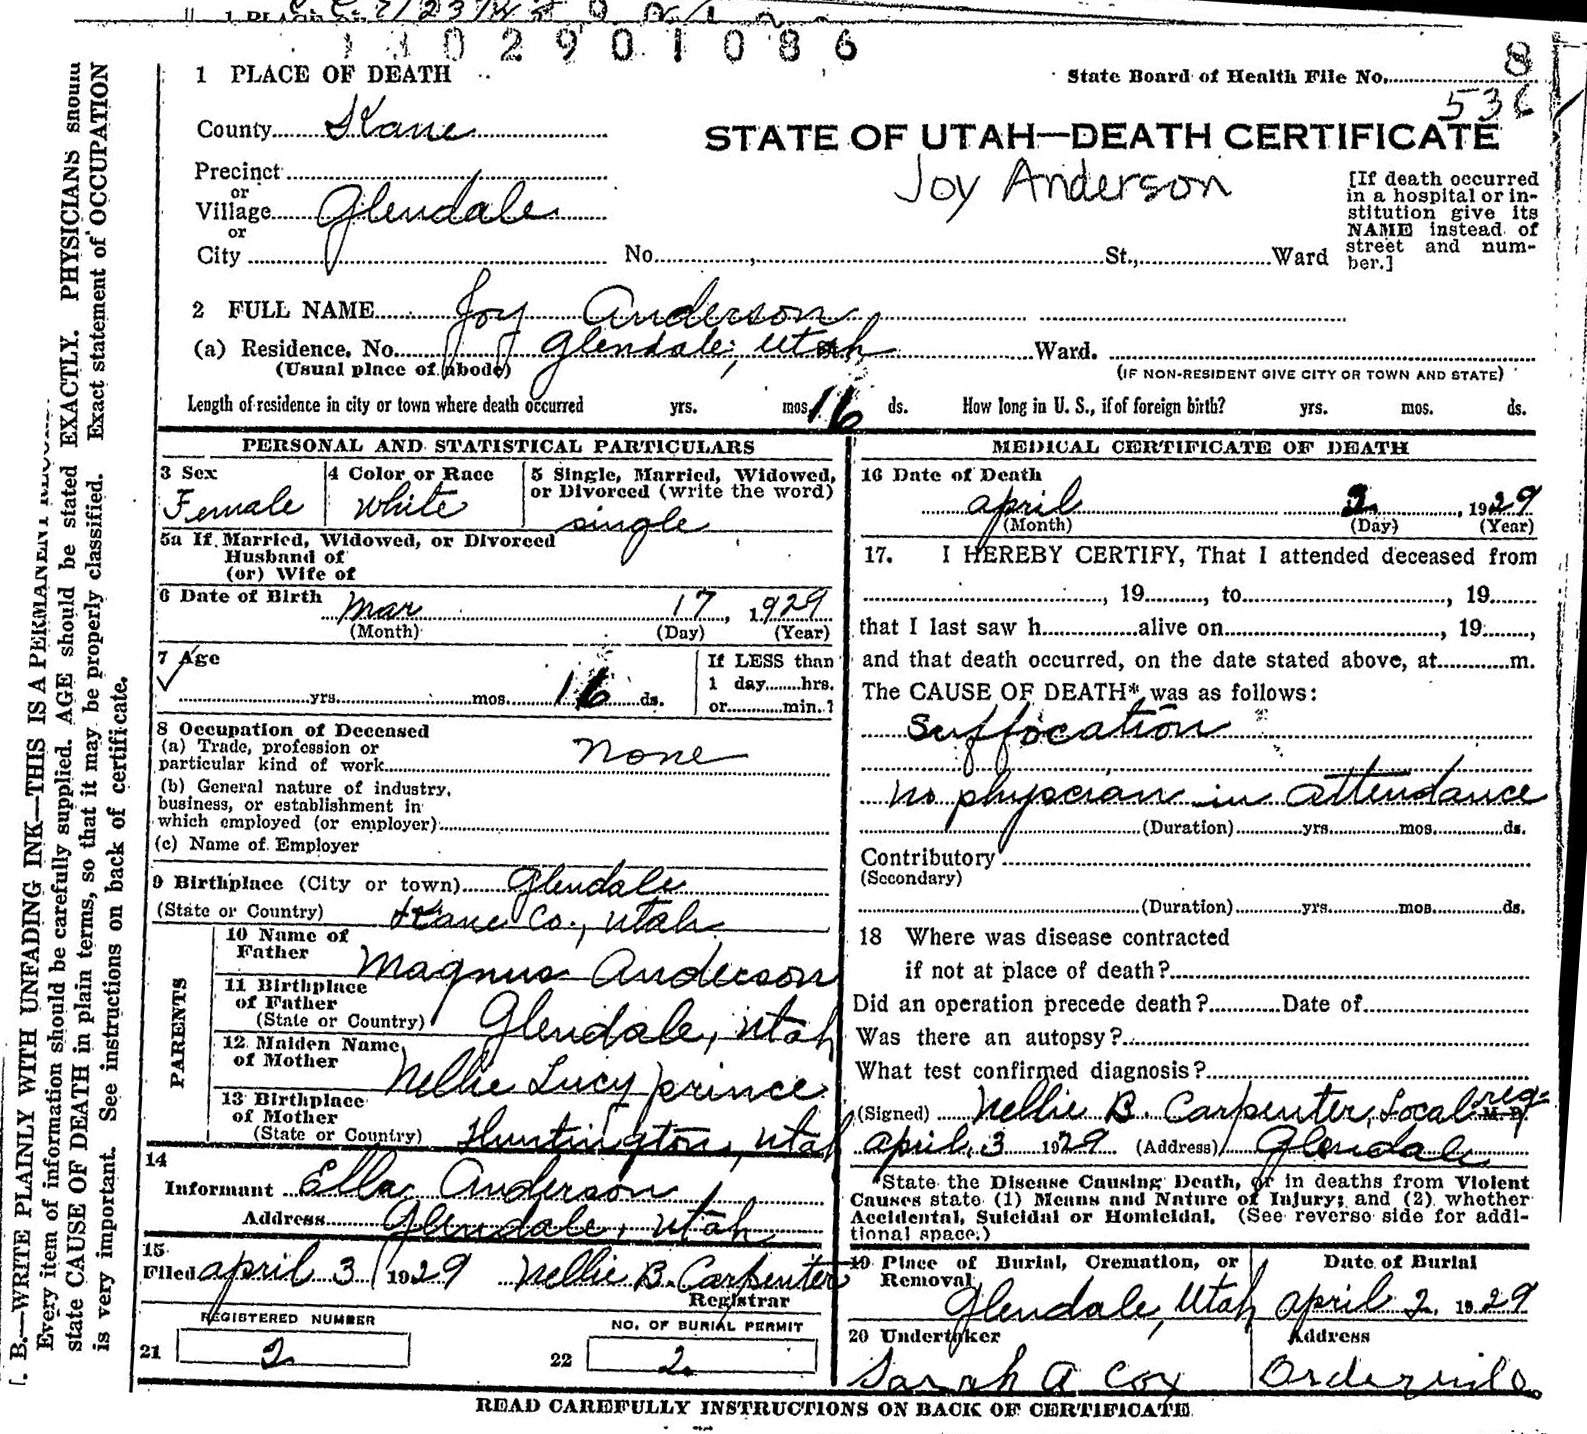 1302901086
1 PLACE OF DEATH
State Board of Health File No. 8
536
County Kane
STATE OF UTAH—DEATH CERTIFICATE
Precinct
or
Joy Anderson
Village Glendale
or
City No. St., Ward
[If death occurred
in a hospital or in-
stitution give its
NAME instead of
street and num-
ber.]
2 FULL NAME Joy Anderson
(a) Residence. No. Glendale, Utah Ward.
(Usual place of abode) (IF NON-RESIDENT GIVE CITY OR TOWN AND STATE)
Length of residence in city or town where death occurred yrs. mos. 16 ds. How long in U. S., if of foreign birth? yrs. mos. ds.
PERSONAL AND STATISTICAL PARTICULARS
3 Sex
Female
4 Color or Race
White
5 Single, Married, Widowed,
or Divorced (write the word)
single
5a If Married, Widowed, or Divorced
Husband of
(or) Wife of
6 Date of Birth
Mar 17, 1929
(Month) (Day) (Year)
7 Age
yrs. mos. 16 ds.
If LESS than
1 day hrs.
or min.?
8 Occupation of Deceased
(a) Trade, profession or
particular kind of work None
(b) General nature of industry,
business, or establishment in
which employed (or employer)
(c) Name of Employer
9 Birthplace (City or town) Glendale
(State or Country) Kane Co., Utah
PARENTS
10 Name of
Father Magnus Anderson
11 Birthplace
of Father
(State or Country) Glendale, Utah
12 Maiden Name
of Mother Nellie Lucy Prince
13 Birthplace
of Mother
(State or Country) Huntington, Utah
14
Informant Ella Anderson
Address Glendale, Utah
15
Filed April 3 1929 Nellie B. Carpenter
Registrar
REGISTERED NUMBER
21 2
NO. OF BURIAL PERMIT
22 2
MEDICAL CERTIFICATE OF DEATH
16 Date of Death
April 2, 1929
(Month) (Day) (Year)
17. I HEREBY CERTIFY, That I attended deceased from
, 19, to, 19
that I last saw h alive on, 19,
and that death occurred, on the date stated above, at m.
The CAUSE OF DEATH* was as follows:
Suffocation
No physician in attendance
(Duration) yrs. mos. ds.
Contributory
(Secondary)
(Duration) yrs. mos. ds.
18 Where was disease contracted
if not at place of death?
Did an operation precede death? Date of
Was there an autopsy?
What test confirmed diagnosis?
(Signed) Nellie B. Carpenter, Local reg. M. D.
April 3 1929 (Address) Glendale
*State the Disease Causing Death, or in deaths from Violent
Causes state (1) Means and Nature of Injury; and (2) whether
Accidental, Suicidal or Homicidal. (See reverse side for addi-
tional space.)
19 Place of Burial, Cremation, or
Removal
Glendale, Utah
Date of Burial
April 2, 1929
20 Undertaker
Sarah A Cox
Address
Orderville
READ CAREFULLY INSTRUCTIONS ON BACK OF CERTIFICATE
B.—WRITE PLAINLY WITH UNFADING INK—THIS IS A PERMANENT
Every item of information should be carefully supplied. AGE should be stated EXACTLY. PHYSICIANS should
state CAUSE OF DEATH in plain terms, so that it may be properly classified. Exact statement of OCCUPATION
is very important. See instructions on back of certificate.